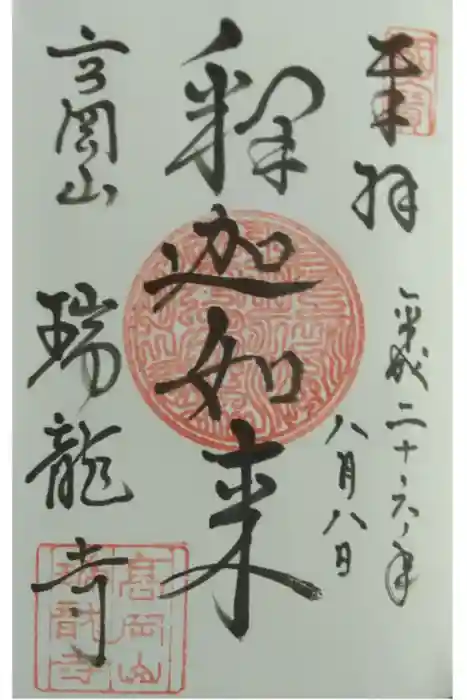 奉拝
平成二十六年
八月八日
釋迦如来
高岡山
瑞龍寺
高岡山
瑞龍寺